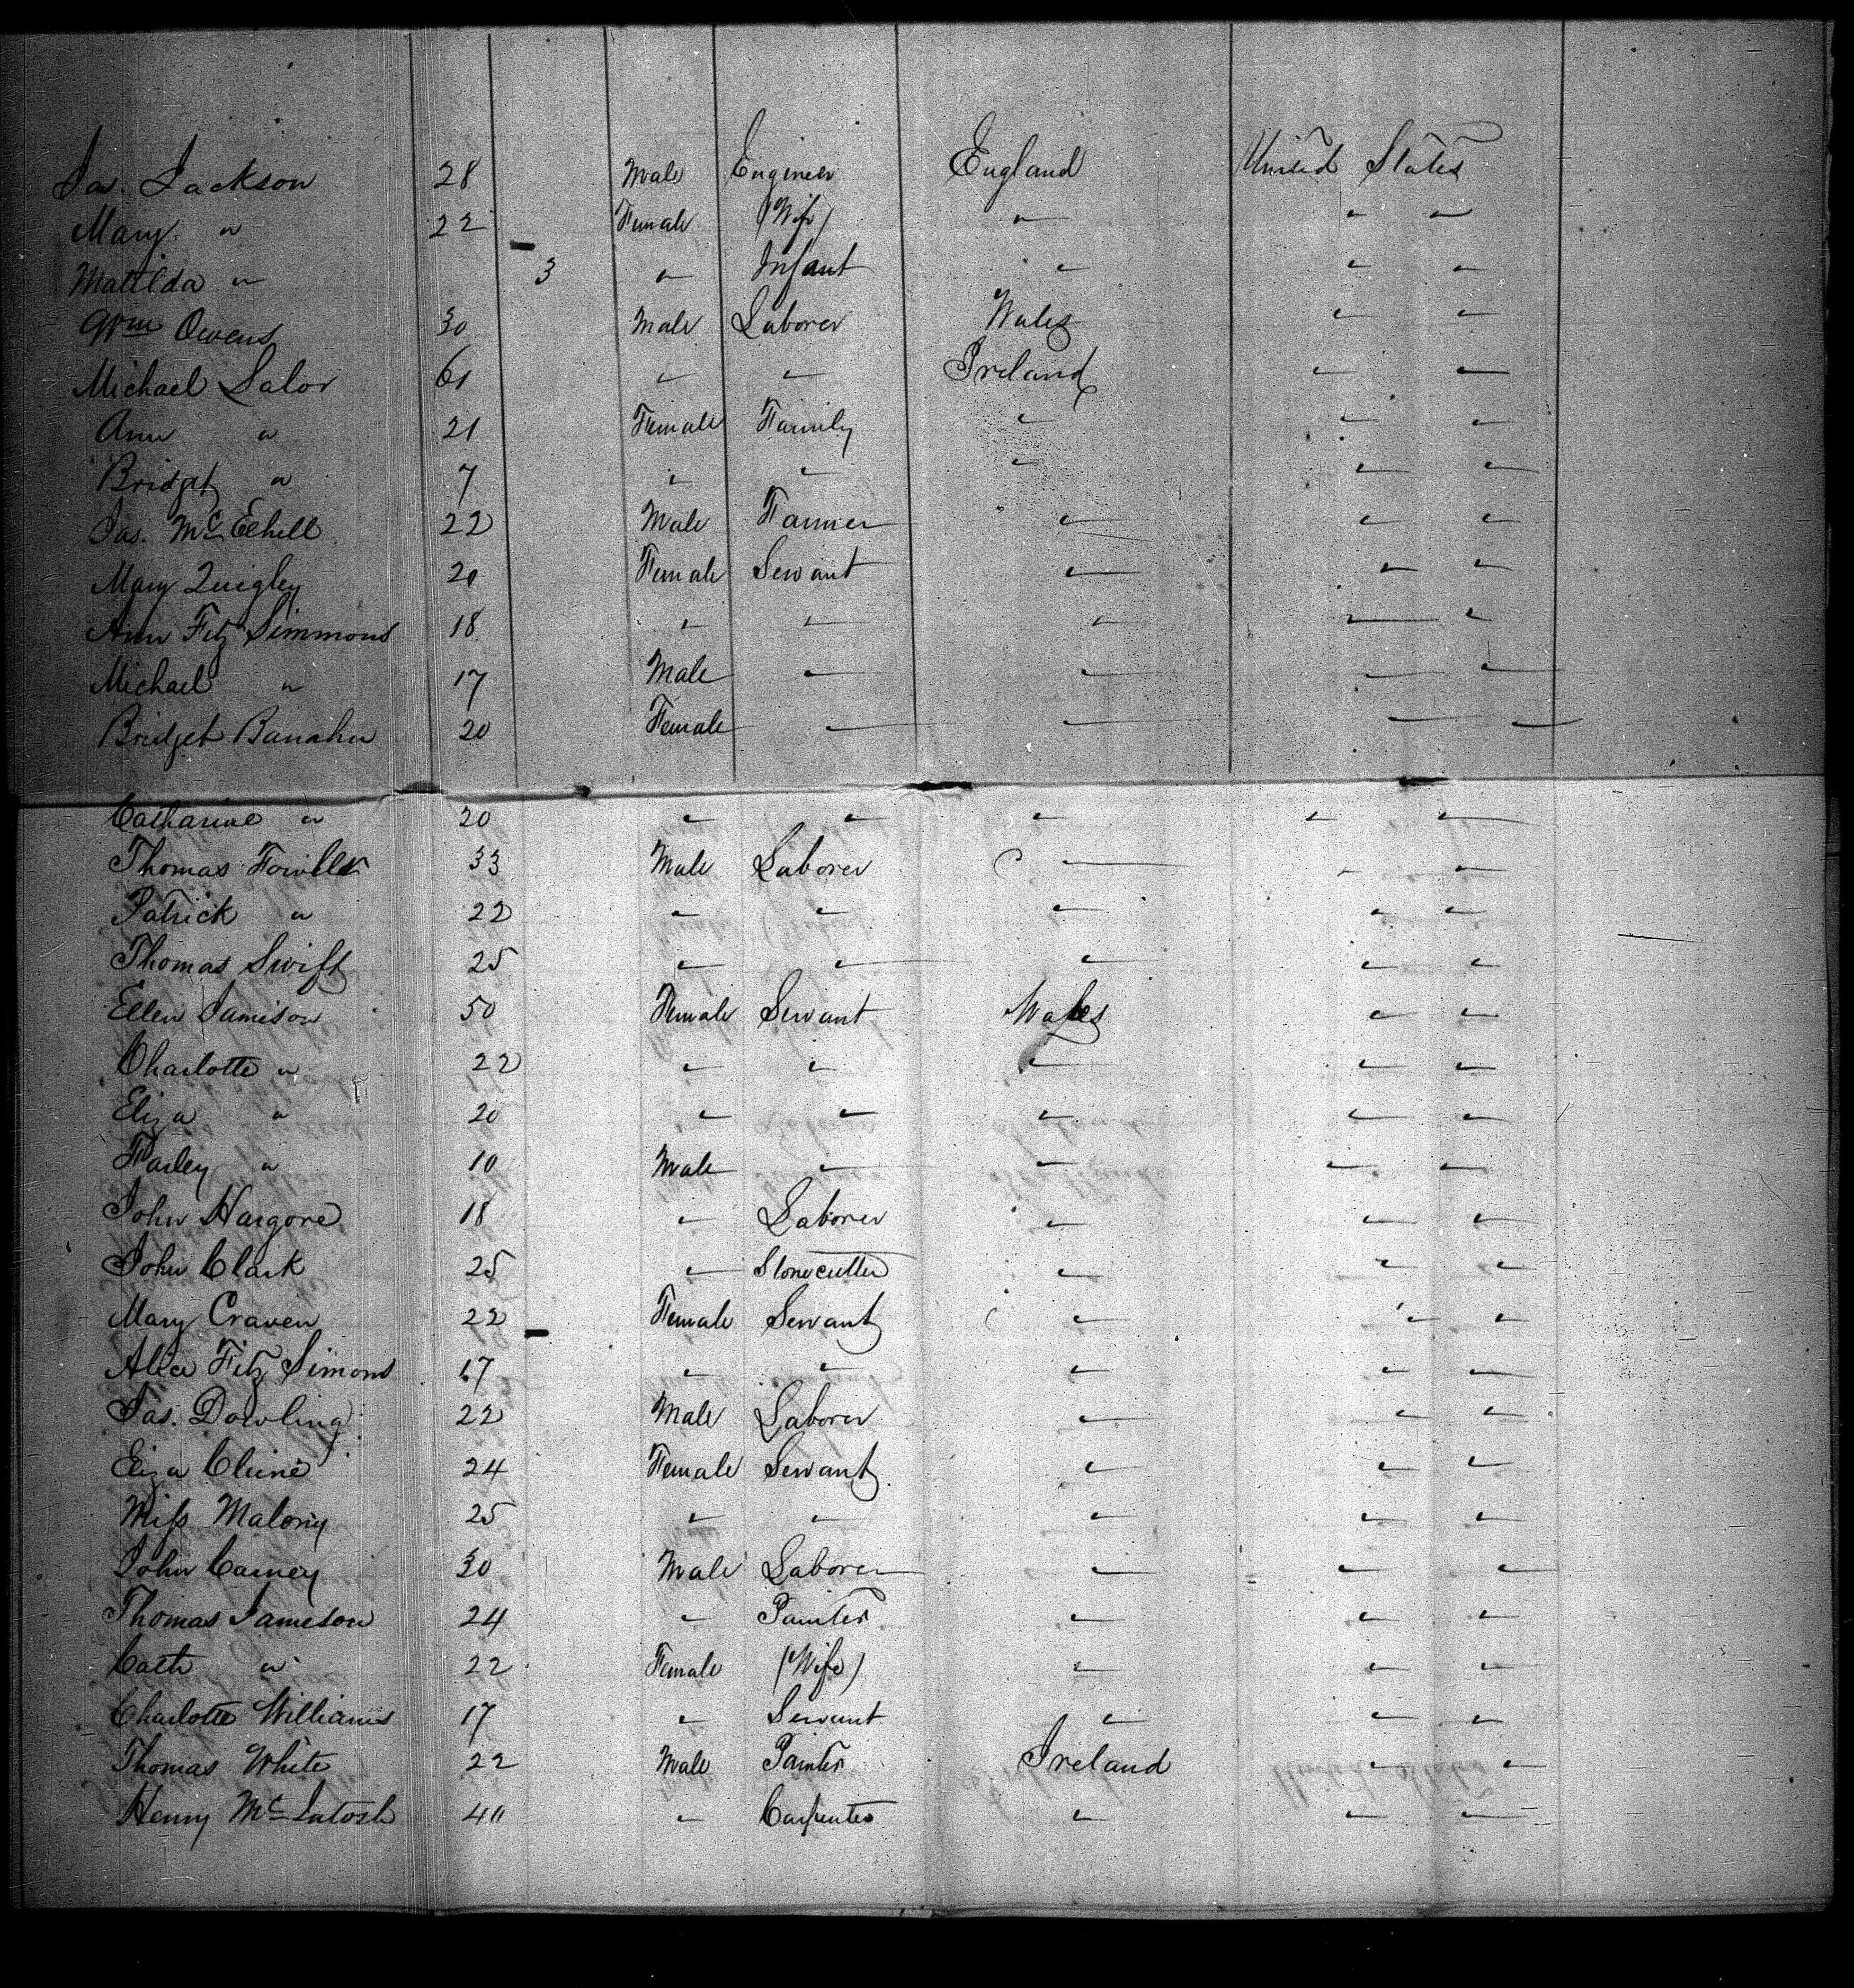 Jas. Jackson 28 Male Engineer England United States
Mary " 22 Female (Wife) " " "
Matilda " 3 " Infant " " "
Wm Owens 30 Male Laborer Wales " "
Michael Lalor 61 " " Ireland " "
Ann " 21 Female Family " " "
Bridget " 7 " " " " "
Jas. Mc 22 Male Farmer " " "
Mary Quigley 20 Female Servant " " "
Ann Fitz Simmons 18 " " " " "
Michael " 17 Male " " " "
Bridget Banahu 20 Female " " " "
Catharine " 20 " " " " "
Thomas Fowler 33 Male Laborer " " "
Patrick " 22 " " " " "
Thomas Swift 25 " " " " "
Ellen Jamison 50 Female Servant Wales " "
Charlotte " 22 " " " " "
Eliza " 20 " " " " "
Farley " 10 Male " " " "
John Hargore 18 " Laborer " " "
John Clark 25 " Stonecutter " " "
Mary Craven 22 Female Servant " " "
Alice Fitz Simons 17 " " " " "
Jas. Dowling 22 Male Laborer " " "
Eliza Cline 24 Female Servant " " "
Miss Malony 25 " " " " "
John Carney 30 Male Laborer " " "
Thomas Jameson 24 " Painter " " "
Cath " 22 Female (Wife) " " "
Charlotte Williams 17 " Servant " " "
Thomas White 22 Male Painter Ireland " "
Henry McIntosh 40 " Carpenter " " "